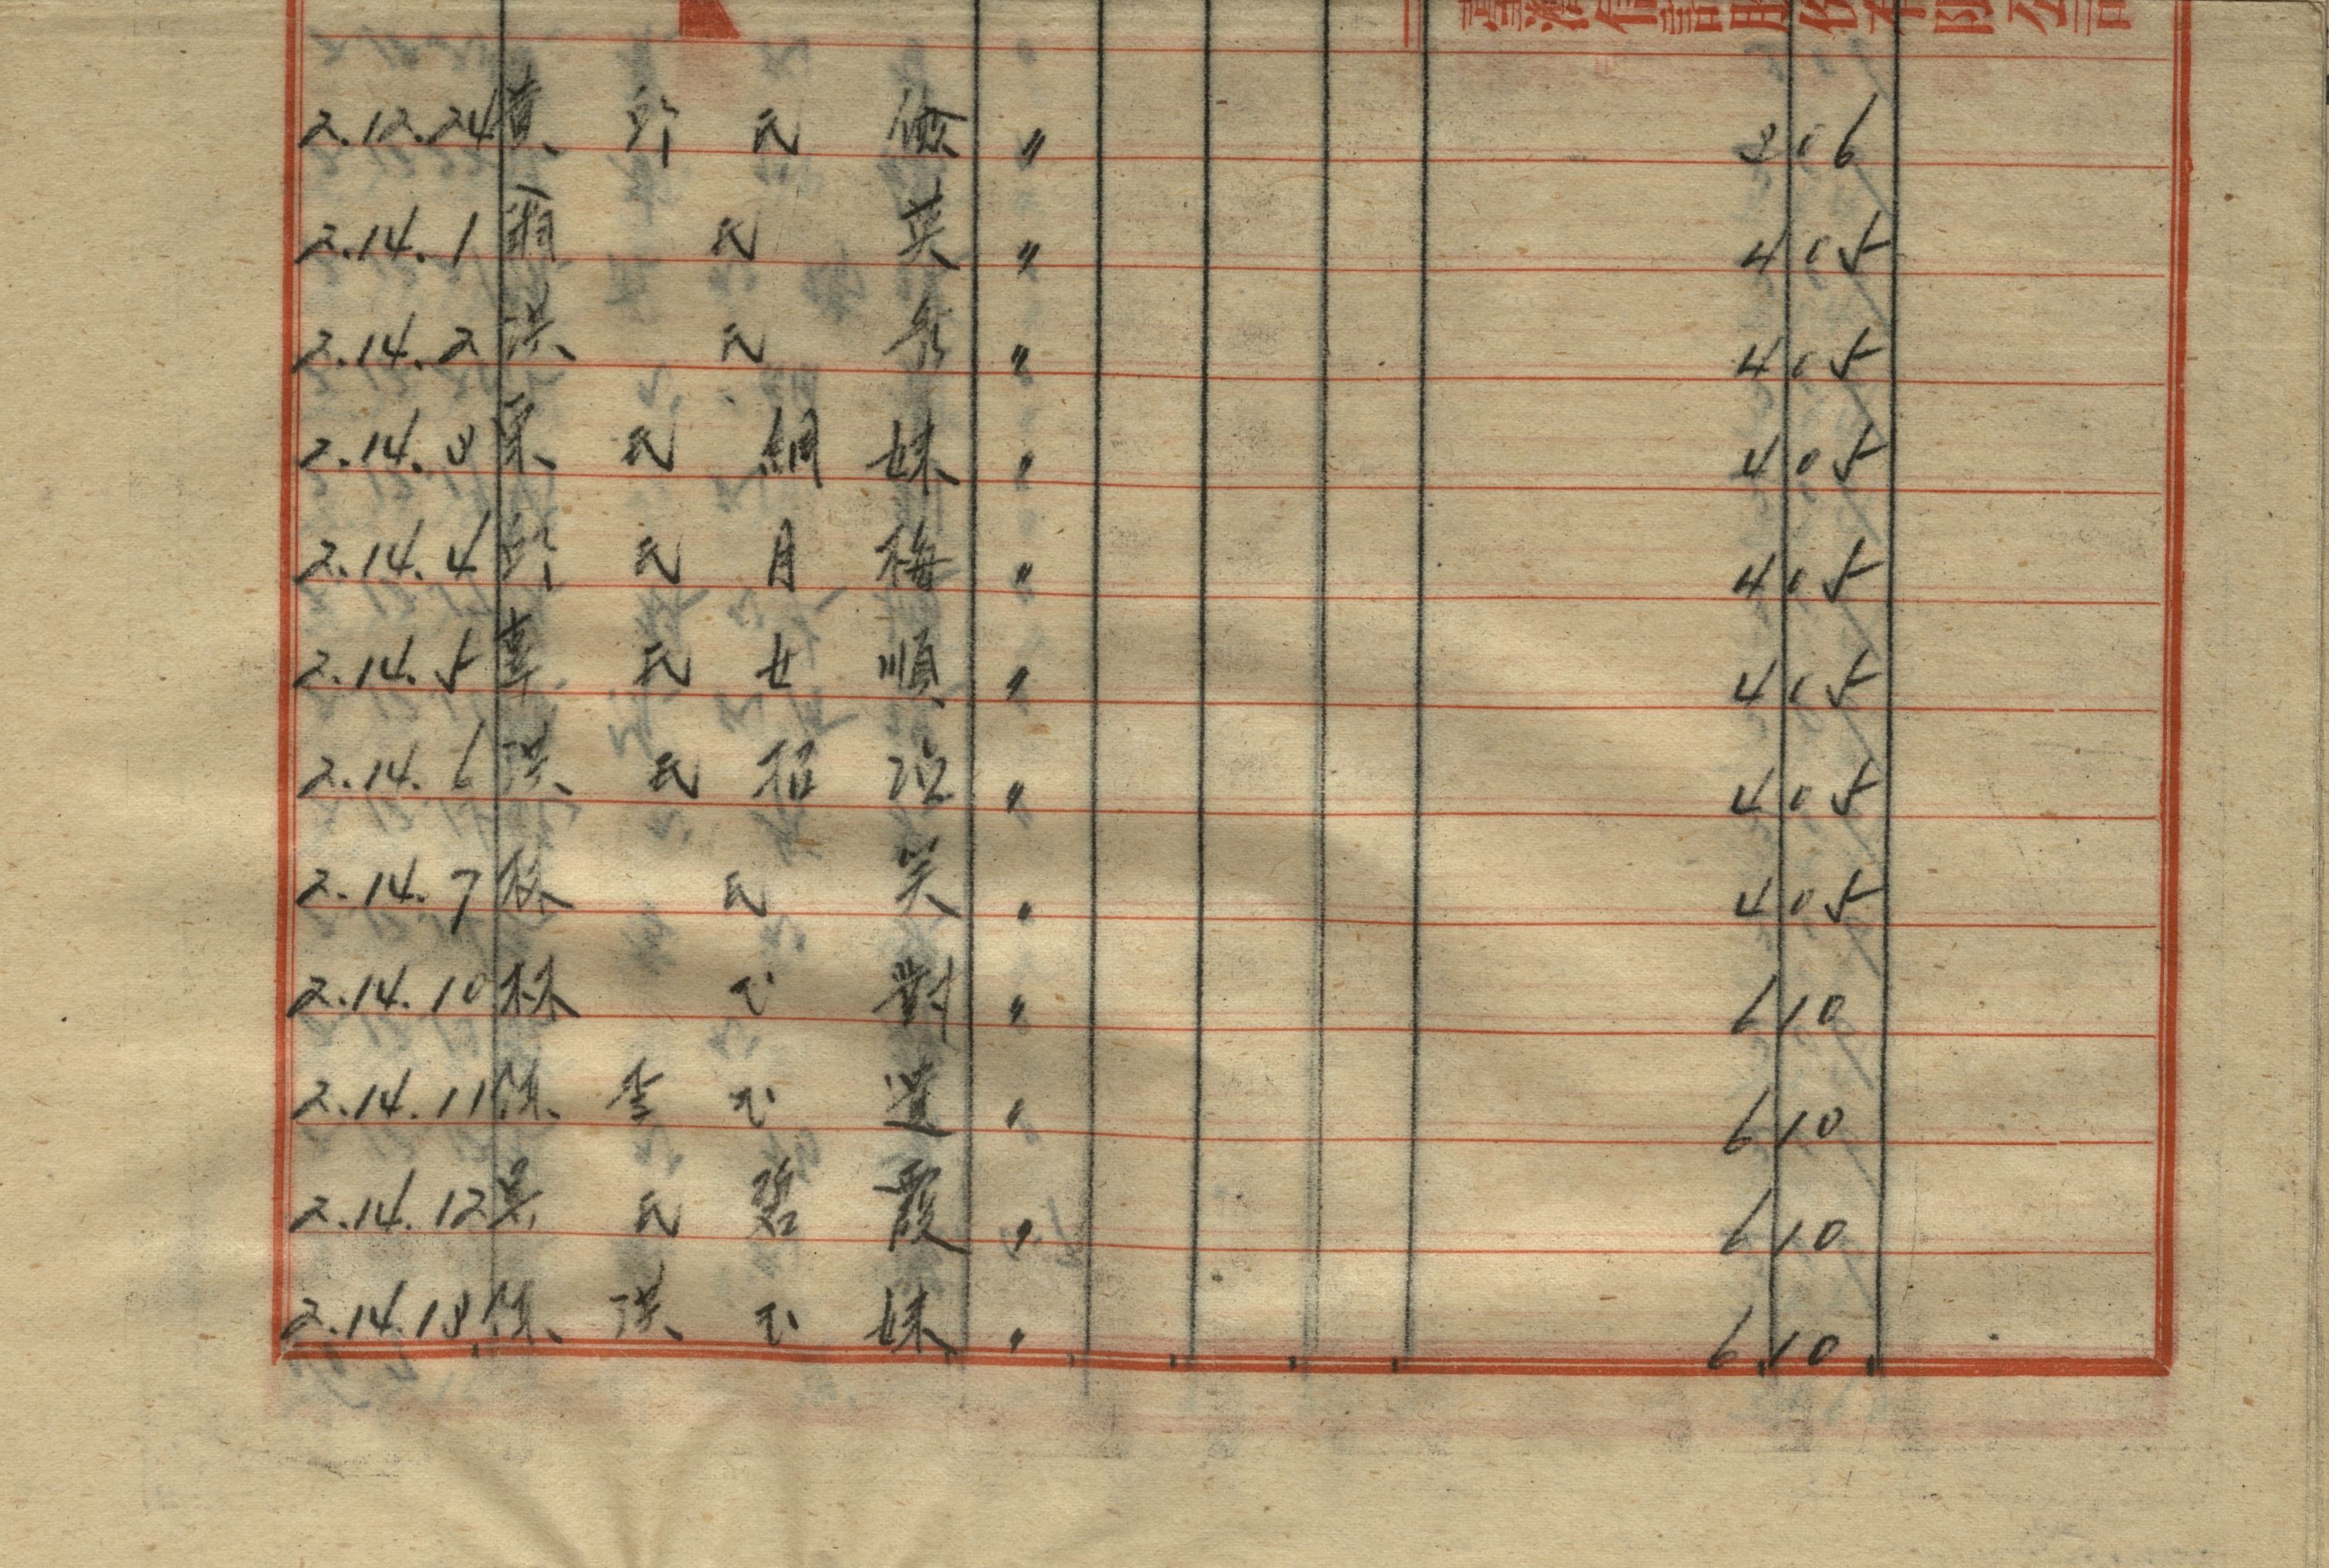 臺灣信託股份有限公司
2.12.24 黃 邱 氏 儉 〃 306
2.14.1 氏 英 〃 405
2.14.2 洪 氏 〃 405
2.14.3 氏 綢 妹 〃 405
2.14.4 邱 氏 月 梅 〃 405
2.14.5 辜 氏 女 順 〃 405
2.14.6 洪 氏 招 治 〃 405
2.14.7 林 氏 笑 〃 405
2.14.10 林 氏 對 〃 610
2.14.11 陳 李 氏 選 〃 610
2.14.12 吳 氏 碧 霞 〃 610
2.14.13 陳 洪 氏 妹 〃 610